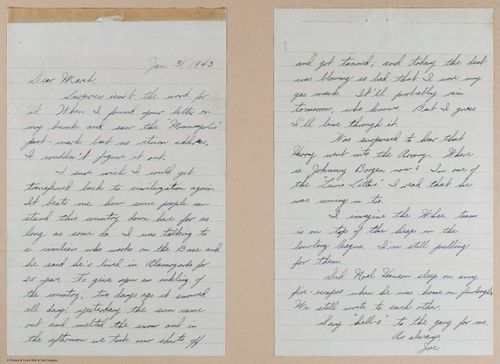 Jan. 31, 1943
Dear March,
Surprise isn't the word for
it. When I found your letter on
my bunk and saw the "Minneapolis"
post mark but no return address,
I couldn't figure it out.
I sure wish I could get
transferred back to civilization again.
It beats me how some people can
stand this country down here for as
long as some do. I was talking to
a civilian who works on the Base and
he said he's lived in Alamogordo for
20 years. To give you an inkling of
the country, two days ago it snowed
all day; yesterday the sun came
out and melted the snow and in
the afternoon we took our shirts off
and got tanned; and today the dust
was blowing so bad that I wore my
gas mask. It'll probably rain
tomorrow, who knows. But I guess
I'll live through it.
Was surprised to hear that
Harry went into the Army. Where
is Johnny Borgen now? In one of
the I read that he
was coming in too.
I imagine the team
is on top of the heap in the
bowling league. I'm still pulling
for them.
Did Noel Hanson sleep on any
fire-escapes when he was home on furlough?
We still write to each other.
Say "hello" to the gang for me.
As always,
Joe